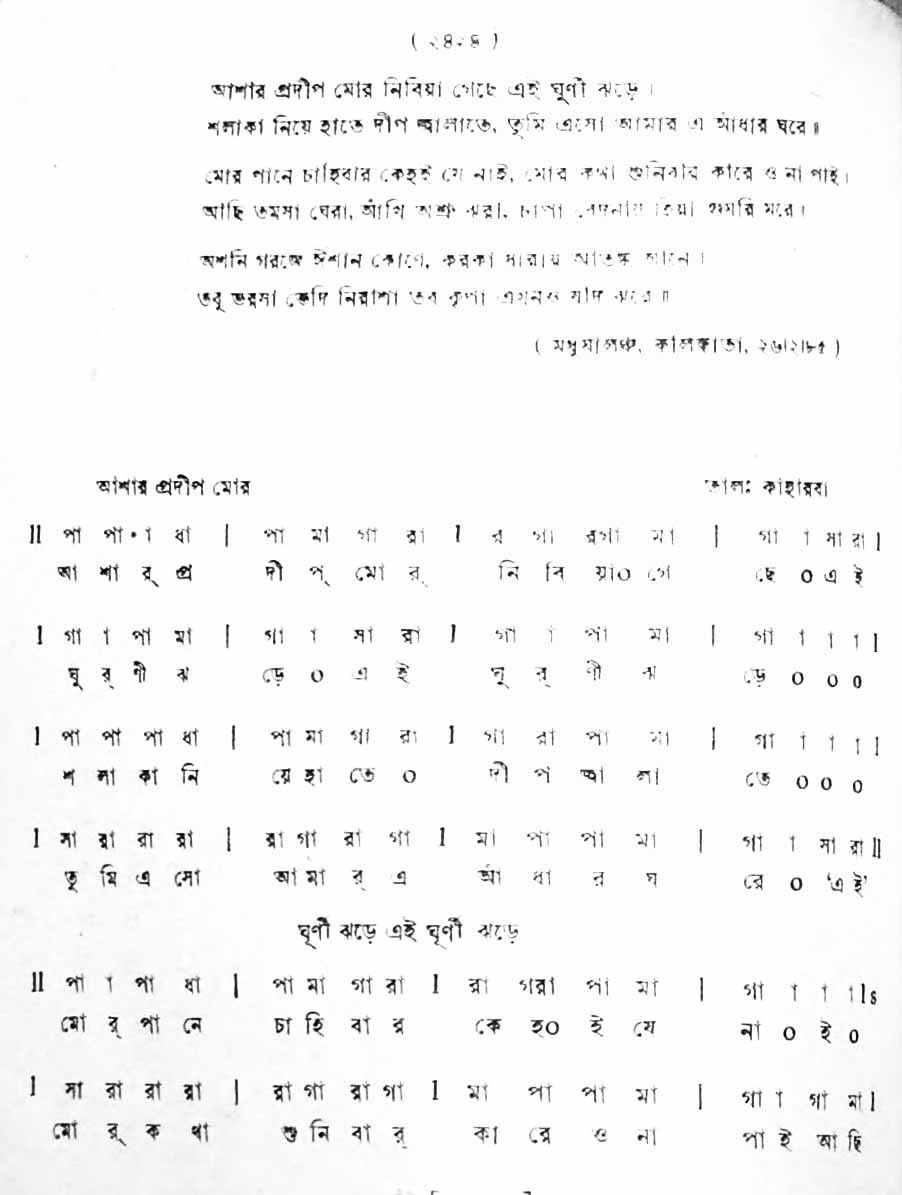 ( ২৪২৪ )
আশার প্রদীপ মোর নিবিয়া গেছে এই ঘূর্ণী ঝড়ে ।
শলাকা নিয়ে হাতে দীপ জ্বালাতে, তুমি এসো আমার এ আঁধার ঘরে ॥
মোর পানে চাহিবার কেহই যে নাই, মোর কথা শুনিবার কারে ও না পাই ।
আছি তমসা ঘেরা, আঁখি অশ্রু ঝরা, চাপা বেদনায় হিয়া গুমরি মরে ।
অশনি গরজে ঈশান কোণে, করকা ধারায় আতঙ্ক আনে ।
তবু ভরসা ভেদি নিরাশা তব কৃপা এখনও যদি ঝরে ॥
( মধুমালঞ্চ, কলিকাতা, ২৬।২।৮৫ )
আশার প্রদীপ মোর তাল: কাহারবা
II পা পা • া ধা | পা মা গা রা I র গা রগা মা | গা া সা রা I
আ শা র্ প্র দী প্ মো র্ নি বি য়া০ গে ছে ০ এ ই
I গা া পা মা | গা া সা রা I গা া পা মা | গা া া া I
ঘু র্ ণী ঝ ড়ে ০ এ ই ঘু র্ ণী ঝ ড়ে ০ ০ ০
I পা পা পা ধা | পা মা গা রা I গা রা পা মা | গা া া া I
শ লা কা নি য়ে হা তে ০ দী প জ্বা লা তে ০ ০ ০
I সা রা রা রা | রা গা রা গা I মা পা পা মা | গা া সা রা II
তু মি এ সো আ মা র্ এ আঁ ধা র ঘ রে ০ ‘এ ই’
ঘূর্ণী ঝড়ে এই ঘূর্ণী ঝড়ে
II পা া পা ধা | পা মা গা রা I রা গরা পা মা | গা া া া I s
মো র্ পা নে চা হি বা র কে হ০ ই যে না ০ ই ০
I সা রা রা রা | রা গা রা গা I মা পা পা মা | গা া গা মা I
মো র্ ক থা শু নি বা র্ কা রে ও না পা ই আ ছি